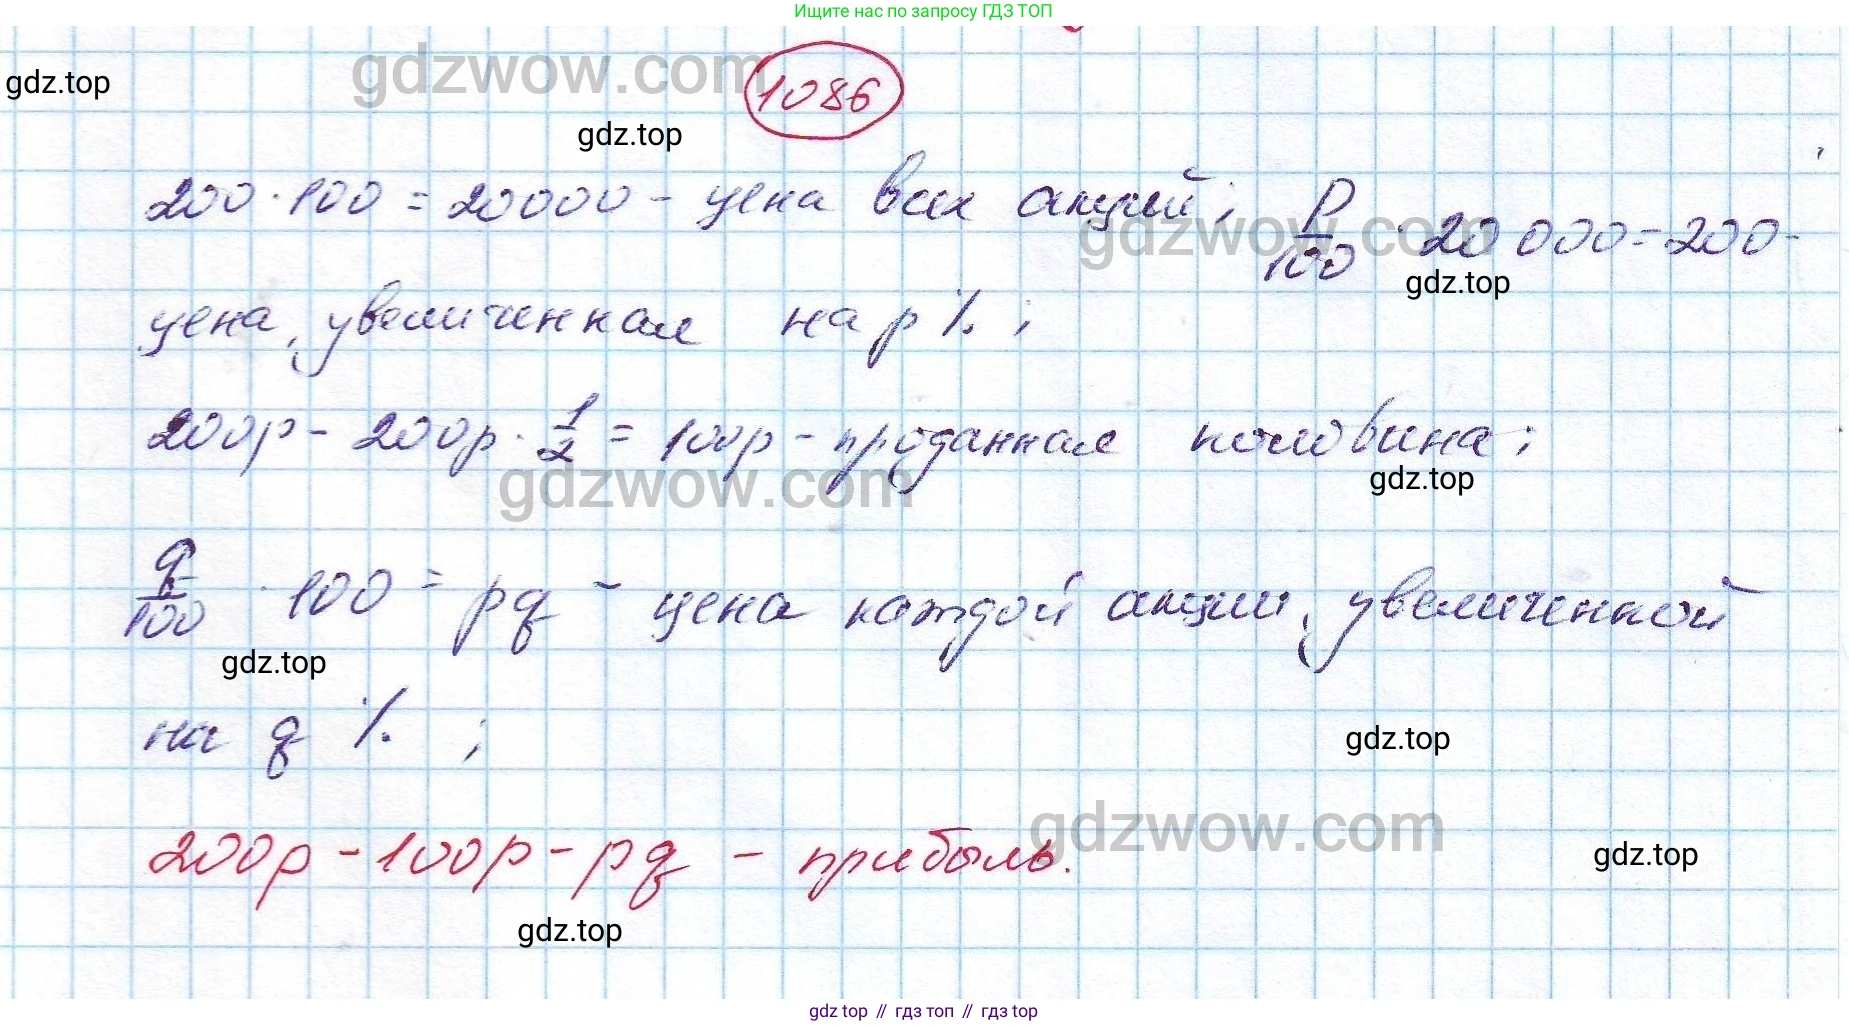 Ищите нас по запросу ГДЗ ТОП
gdz.top
gdzwow.com
1086
gdz.top
200 · 100 = 20000 - цена всех акций; p/100 · 20 000 = 200 -
gdzwow.com
gdz.top
цена, увеличенная на p %;
200p - 200p · 1/2 = 100p - проданная половина;
gdzwow.com
gdz.top
q/100 · 100 = pq - цена каждой акции, увеличенной
gdz.top
на q % ;
gdz.top
gdzwow.com
200p - 100p - pq - прибыль.
gdz.top
gdz.top
gdz top // гдз топ // гдз top